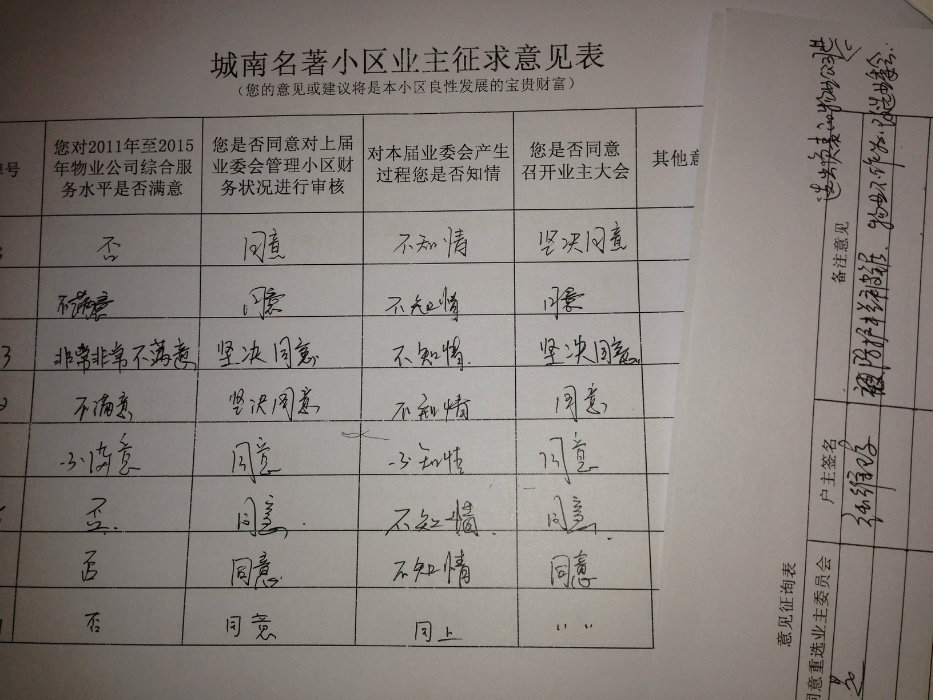 城南名著小区业主征求意见表
（您的意见或建议将是本小区良性发展的宝贵财富）
号
您对2011年至2015
年物业公司综合服
务水平是否满意
您是否同意对上届
业委会管理小区财
务状况进行审核
对本届业委会产生
过程您是否知情
您是否同意
召开业主大会
其他意
否 同意 不知情 坚决同意
不满意 同意 不知情 同意
3 非常非常不满意 坚决同意 不知情 坚决同意
2 不满意 坚决同意 不知情 同意
不满意 同意 不知情 同意
否. 同意. 不知情. 同意.
否 同意 不知情 同意
否 同意 同上 〃 〃
意见征询表
同意重选业主委员会
户主签名
备注意见
是